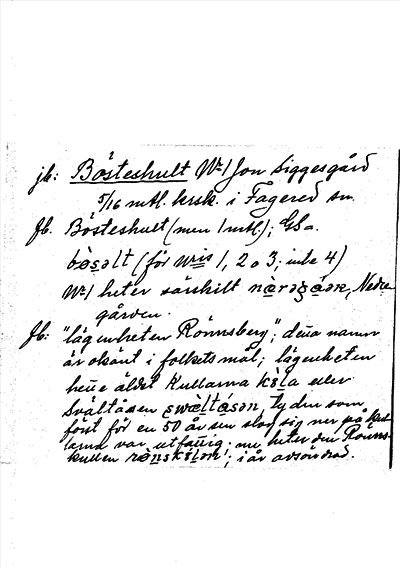 jb: Bösteshult No 1 Jon Siggesgård
5/16 mtl. krsk. i Fagered sn.
fb. Bösteshult (men 1 mtl.); GSa.
bòsəlt (för N:ris 1, 2 o 3; inte 4)
No 1 heter särskilt nærəgáən, Nedre
gården.
fb: "lägenheten Rönnsberg"; dena namn
är okänt i folkets mål; lägenheten
hette äldst Kullarna köla eller
Svältåsen swæltásən, ty den som
först för en 50 år sen slog sig ner på
var utfattig; nu heter den Rönns-
kullen rönskölən; i år avsöndrad.